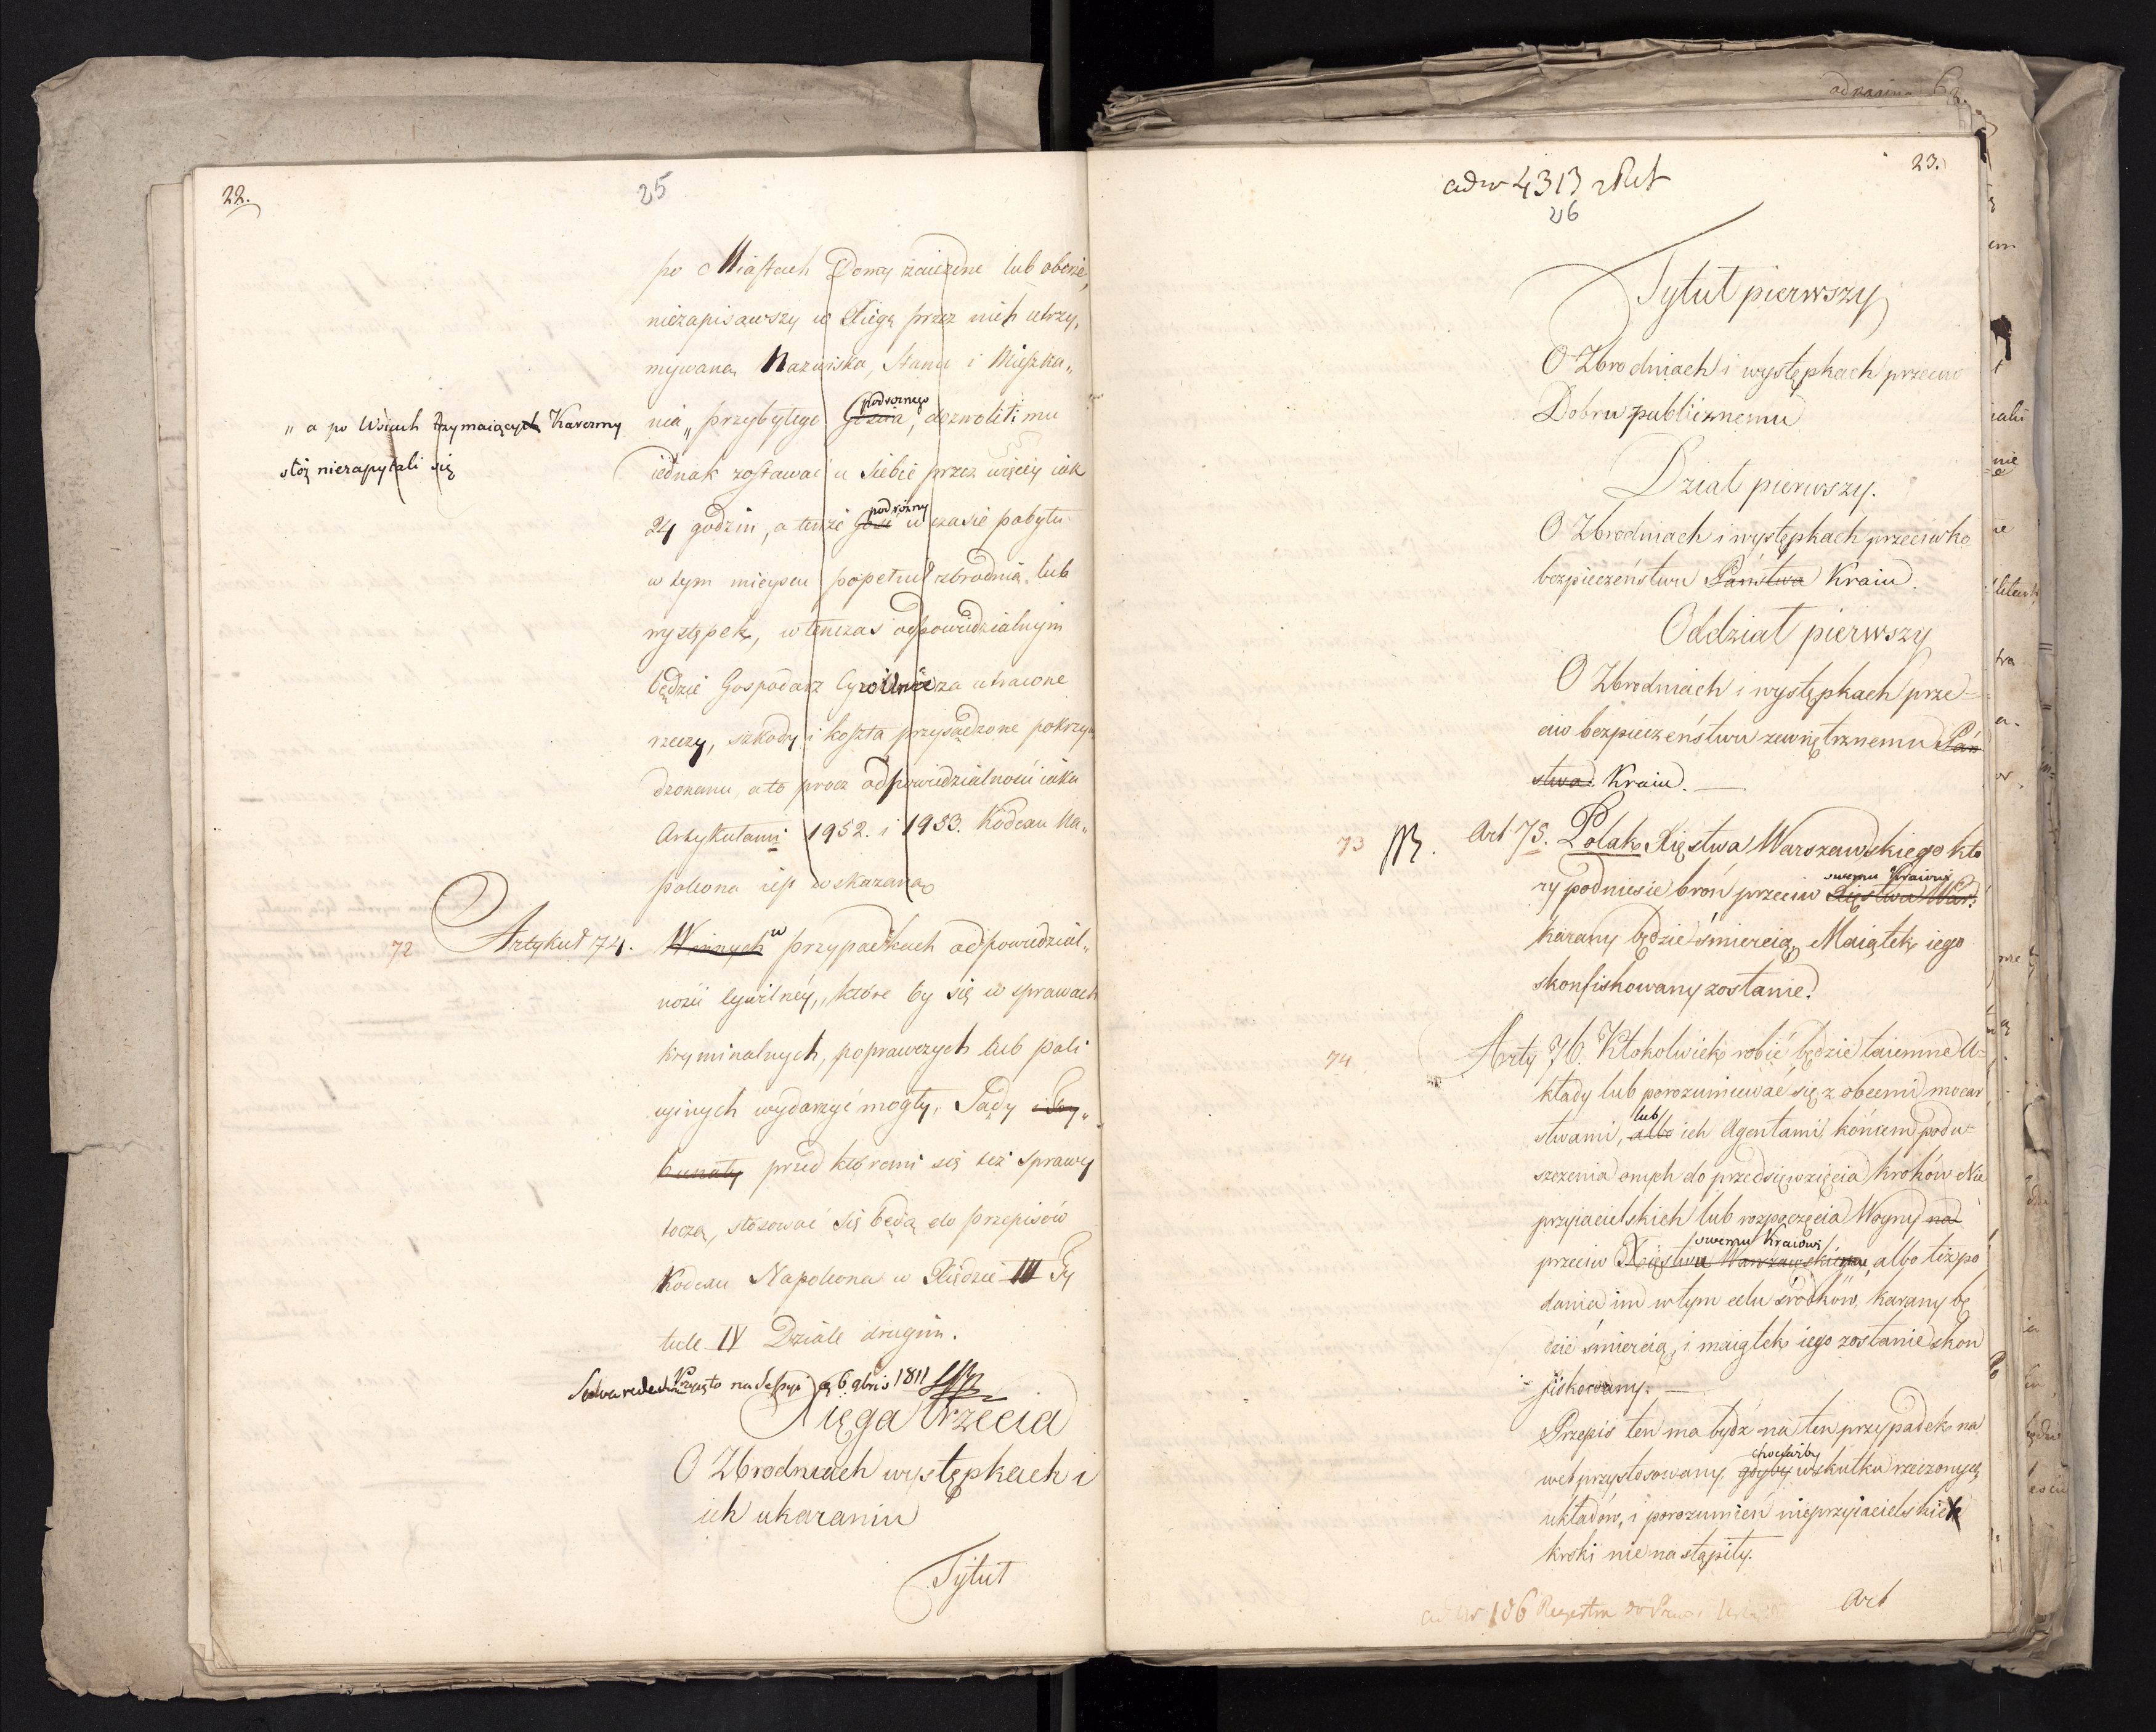 22.
25
po Miastach Domy zaiezdne lub oberże,
niezapisawszy w Xięgę przez nich utrzy„
mywaną Nazwiska, Stanu i Mieszka„
„ a po Wsiach trzymaiących Karczmy
nia „ przybyłego Gościa, podrożnego dozwolili mu
iednak zostawać u siebie przez więcey iak
24 godzin, a tenże Gość podrożny w czasie pobytu
w tym mieyscu popełnił zbrodnią lub
występek, wtenczas odpowiedzialnym
będzie Gospodarz Cywilnie za utracone
rzeczy, szkody i koszta przysądzone pokrzyw
dzonemu, a to procz odpowiedzialności iaka
Artykułami 1952. i 1953. Kodexu Na„
poleona iest wskazana
72 Artykuł 74. Winnych w przypadkach odpowiedzial„
ności Cywilney, które by się w sprawach
kryminalnych, poprawczych lub poli
cyinych wydarzyć mogły, Sądy i Try„
bunały przed któremi się też sprawy
toczą, stosować się będą do przepisów
Kodexu Napoleona w Xiędze III Ty
tule IV Dziale drugim.
na Sessyi 6 9bris 1811
Xięga trzecia
O Zbrodniach występkach i
ich ukaraniu
Tytuł
23.
4313
26
Tytuł pierwszy
O Zbrodniach i występkach przeciw
Dobru publicznemu
Dział pierwszy.
O Zbrodniach i występkach przeciwko
bezpieczeństwu Państwa Kraiu.
Oddział pierwszy
O Zbrodniach i występkach prze=
ciw bezpieczeństwu zewnętrznemu Pań
stwa. Kraiu.
73 Art 75. Polak Xięstwa Warszawskiego kto
ry podniesie broń przeciw Xięstwu War: swemu Kraiowi
karany będzie śmiercią, Maiątek iego
skonfiskowany zostanie.
74 Arty 76. Ktokolwiek robić będzie taiemne U=
kłady lub porozumiewać się z obcemi mocar
stwami, albo lub ich Agentami, końcem podu=
szczenia onych do przedsięwzięcia kroków Nie
przyiacielskich lub rozpoczęcia Woyny na
przeciw Xięstwu Warszawskiemu, swemu Kraiowi albo też po
dania im w tym celu środków, karany bę
dzie śmiercią, i maiątek iego zostanie skon
fiskowany.
Przepis ten ma bydź na ten przypadek na
wet przystosowany gdyby chociażby w skutku rzeczonych
układów, i porozumień nieprzyiacielskie
kroki nie nastąpiły.
Art